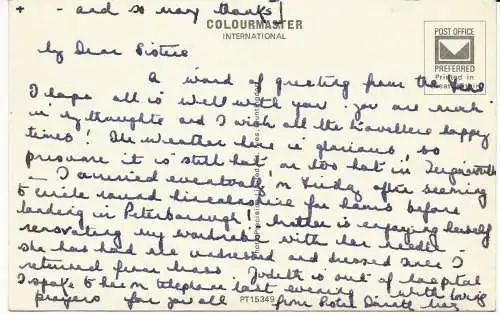 + - and so many thanks!
COLOURMASTER
INTERNATIONAL
POST OFFICE
PREFERRED
Printed in
Great
My Dear Sisters
A word of greeting from the
I hope all is well with you. You are much
in my thoughts and I wish all the travellers happy
times! The weather here is glorious, so
presume it is still hot or too hot in
- I arrived eventually on Friday after seeming
to circle round Lincolnshire for hours before
landing in Peterborough! Mother is enjoying herself
renovating my wardrobe with her needle
she has had me undressed and dressed since I
returned from Mass Judith is out of hospital
I spoke to her on telephone last evening with loving
prayers for you all from Sister
PT15349